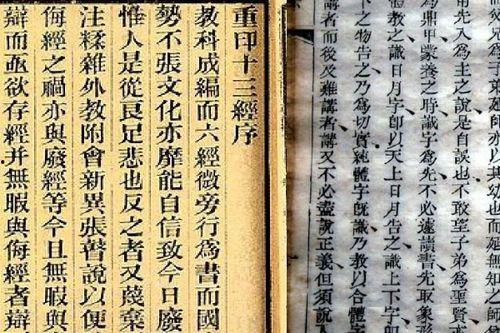 用先入爲主之說是自誤也不敢望子弟爲聖賢
爲鼎甲蒙養之時識字爲先不必遽讀書先取象
體教之識日月字卽以天上日月告之識上下字
下之物告之乃爲切實純體字旣識乃教以合體字
講者而後及難講者講又不必盡說正義但須說入
重印十三經序
教科成編而六經微旁行爲書而國
勢不張文化亦靡能自信致今日廢
惟人是從良足悲也反之者又蔑棄
注糅雜外教附會新異張瞽說以便
侮經之禍亦與廢經等今且無暇與
辯而亟欲存經并無暇與侮經者辯